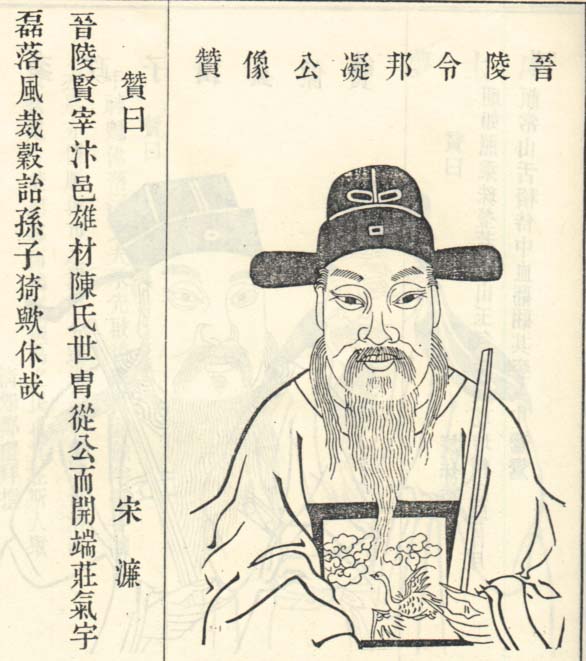 晉陵令邦凝公像贊
贊曰　宋濂
晉陵賢宰汴邑雄材陳氏世冑從公而開端莊氣宇
磊落風裁穀詒孫子猗歟休哉